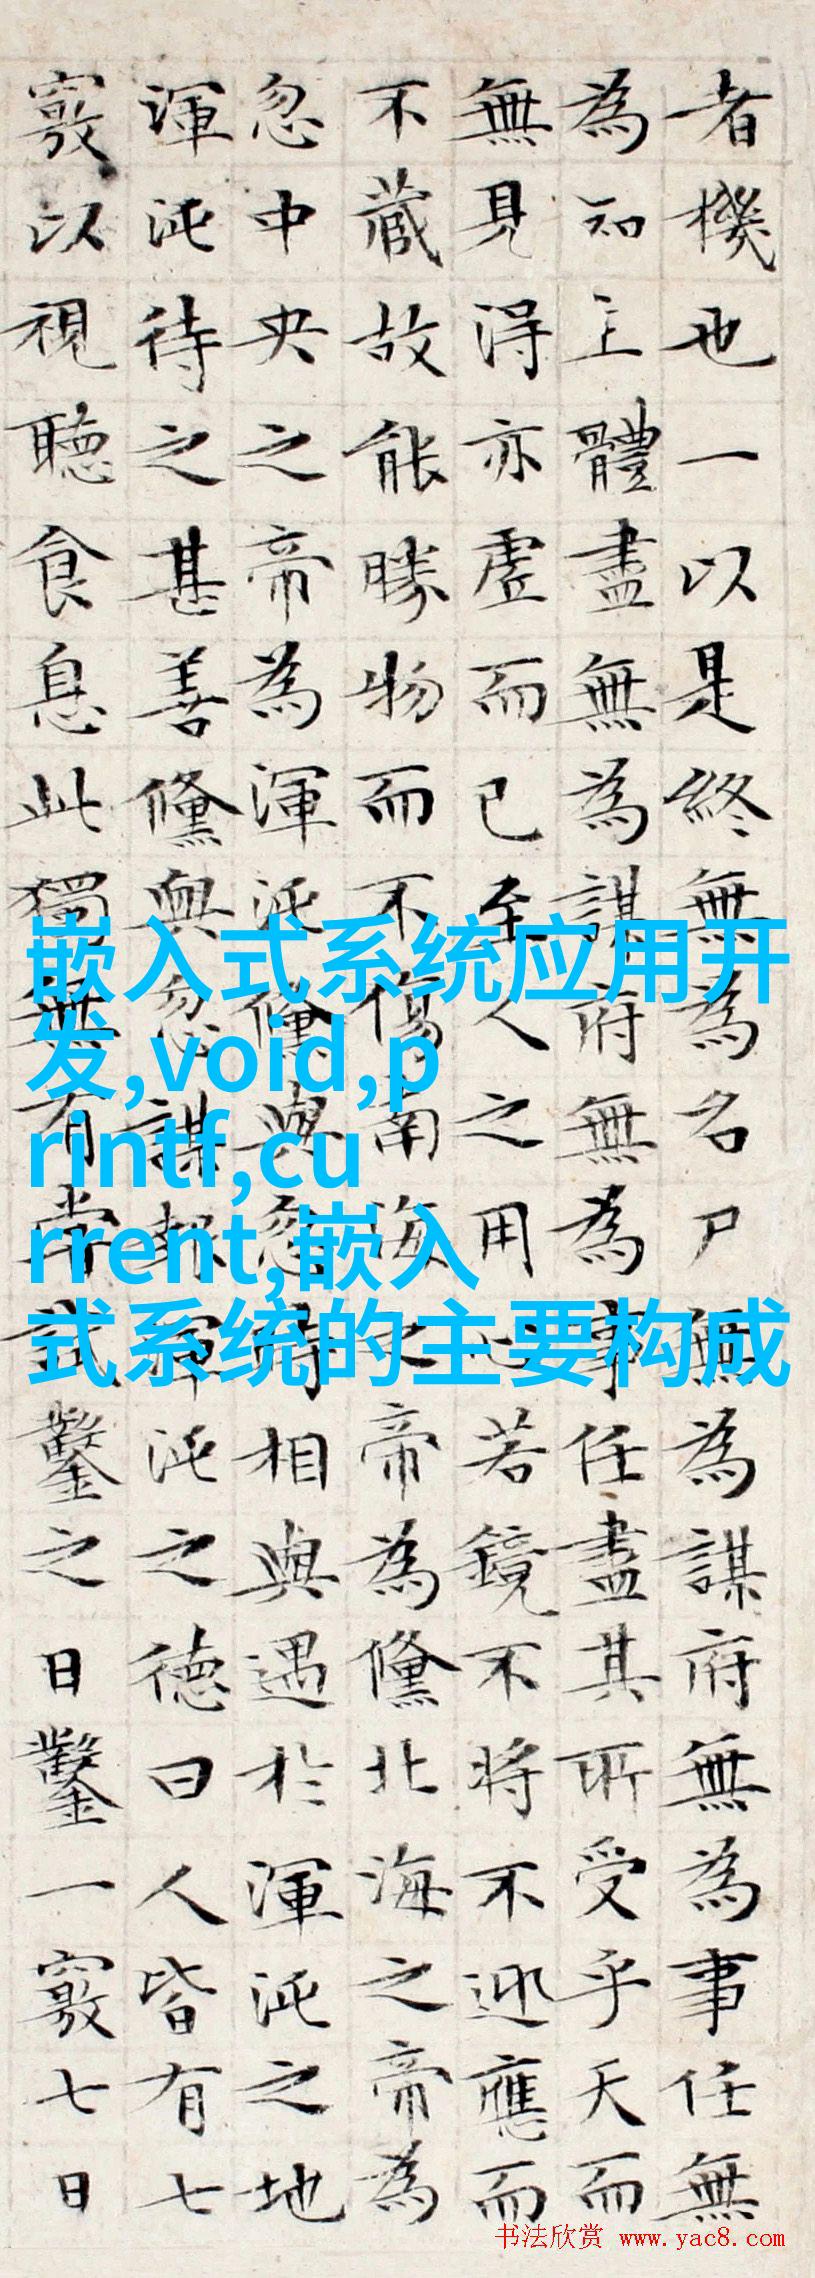 者機也一以是終無為名尸無為謀府無為事任無
為知主體盡無為謀府無為事任盡其所受乎天而
無見得亦虛而已至人之用心若鏡不將不迎應而
不藏故能勝物而不傷南海之帝為儵北海之帝為
忽中央之帝為渾沌儵與忽時相與遇於渾沌之地
渾沌待之甚善儵與忽謀報渾沌之德曰人皆有七
竅以視聽食息此獨無有嘗試鑿之日鑿一竅七日
嵌入式系统应用开
发,void,p
rintf,cu
rrent,嵌入
式系统的主要构成
书法欣赏 www.yac8.com